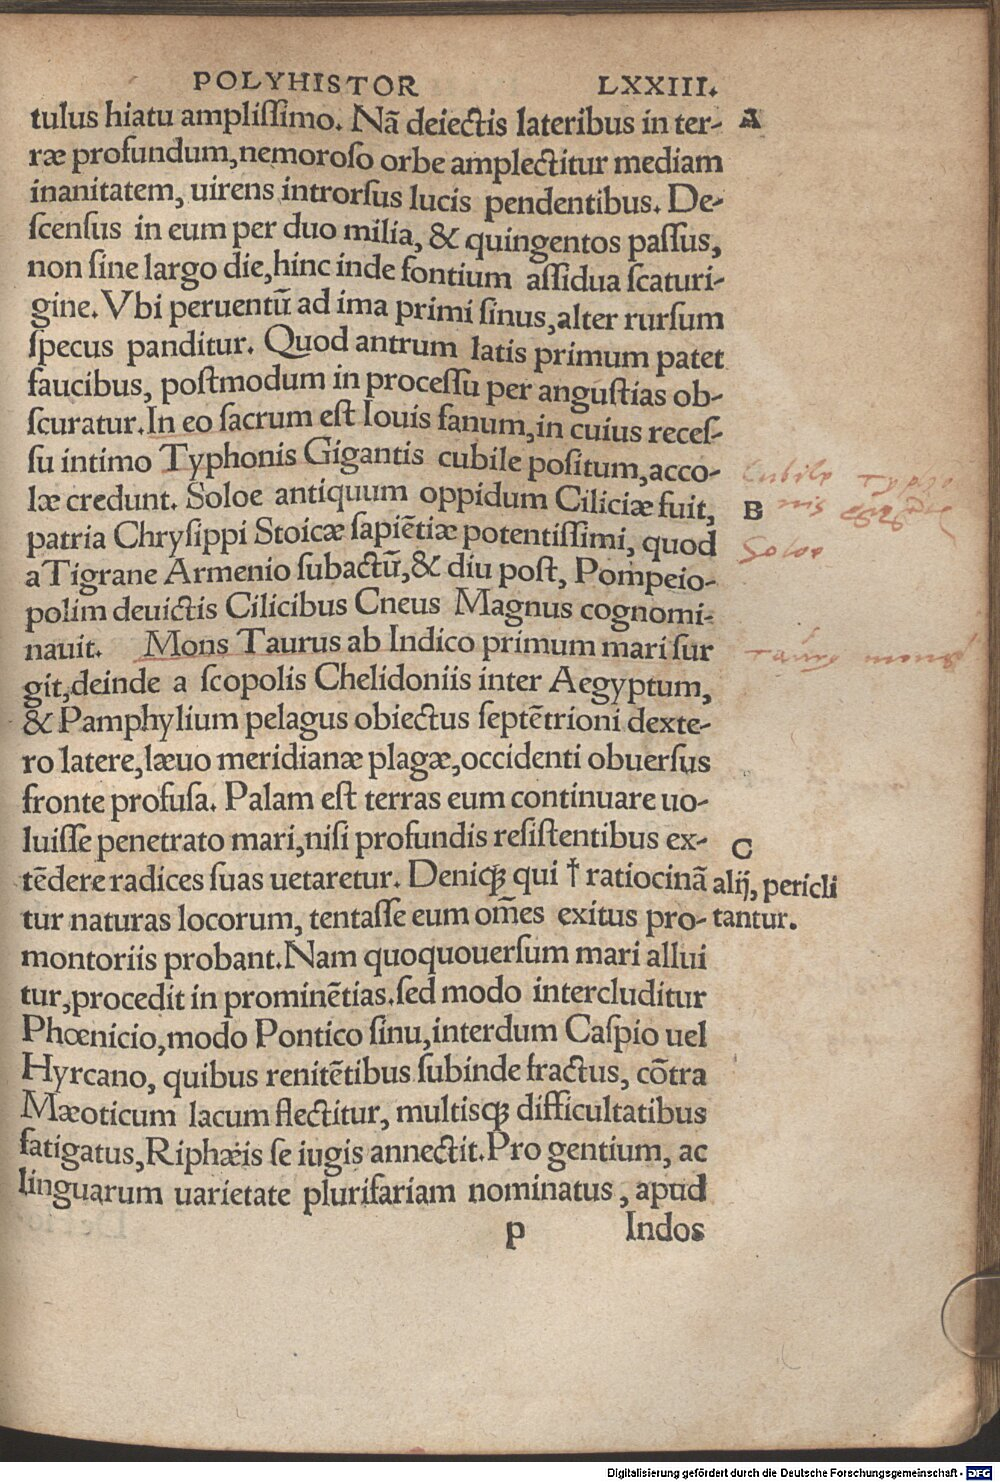 POLYHISTOR LXXIII.
tulus hiatu ampliſſimo. Nã deiectis lateribus in ter- A
ræ profundum, nemoroſo orbe amplectitur mediam
inanitatem, uirens introrſus lucis pendentibus. De-
ſcenſus in eum per duo milia, & quingentos paſſus,
non ſine largo die, hinc inde fontium aſſidua ſcaturi-
gine. Vbi peruentũ ad ima primi ſinus, alter rurſum
ſpecus panditur. Quod antrum latis primum patet
faucibus, poſtmodum in proceſſu per anguſtias ob-
ſcuratur. In eo ſacrum eſt Iouis fanum, in cuius receſ-
ſu intimo Typhonis Gigantis cubile poſitum, acco-
læ credunt. Soloe antiquum oppidum Ciliciæ fuit,
patria Chryſippi Stoicæ ſapiẽtiæ potentiſſimi, quod
a Tigrane Armenio ſubactũ, & diu poſt, Pompeio-
polim deuictis Cilicibus Cneus Magnus cognomi-
nauit. Mons Taurus ab Indico primum mari ſur
git, deinde a ſcopolis Chelidoniis inter Aegyptum,
& Pamphylium pelagus obiectus ſeptẽtrioni dexte-
ro latere, læuo meridianæ plagæ, occidenti obuerſus
fronte profuſa. Palam eſt terras eum continuare uo-
luiſſe penetrato mari, niſi profundis reſiſtentibus ex-
tẽdere radices ſuas uetaretur. Deniqꝫ qui † ratiocinã
tur naturas locorum, tentaſſe eum om̃es exitus pro-
montoriis probant. Nam quoquouerſum mari allui
tur, procedit in prominẽtias. ſed modo intercluditur
Phœnicio, modo Pontico ſinu, interdum Caſpio uel
Hyrcano, quibus renitẽtibus ſubinde fractus, cõtra
Mæoticum lacum flectitur, multisqꝫ difficultatibus
fatigatus, Riphæis ſe iugis annectit. Pro gentium, ac
linguarum uarietate plurifariam nominatus, apud
p Indos
Cubile Typho
nis
B
Soloe
Taurus mons
C
alij, pericli
tantur.
Digitalisierung gefördert durch die Deutsche Forschungsgemeinschaft - DFG